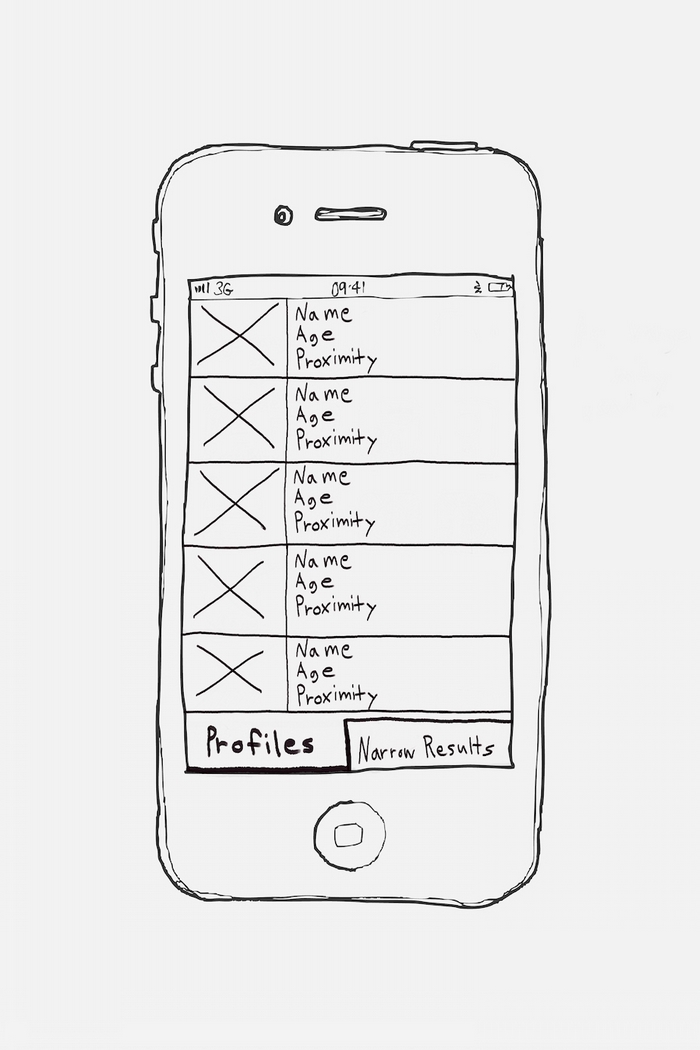 3G 09:41
Name
Age
Proximity
Name
Age
Proximity
Name
Age
Proximity
Name
Age
Proximity
Name
Age
Proximity
Profiles Narrow Results